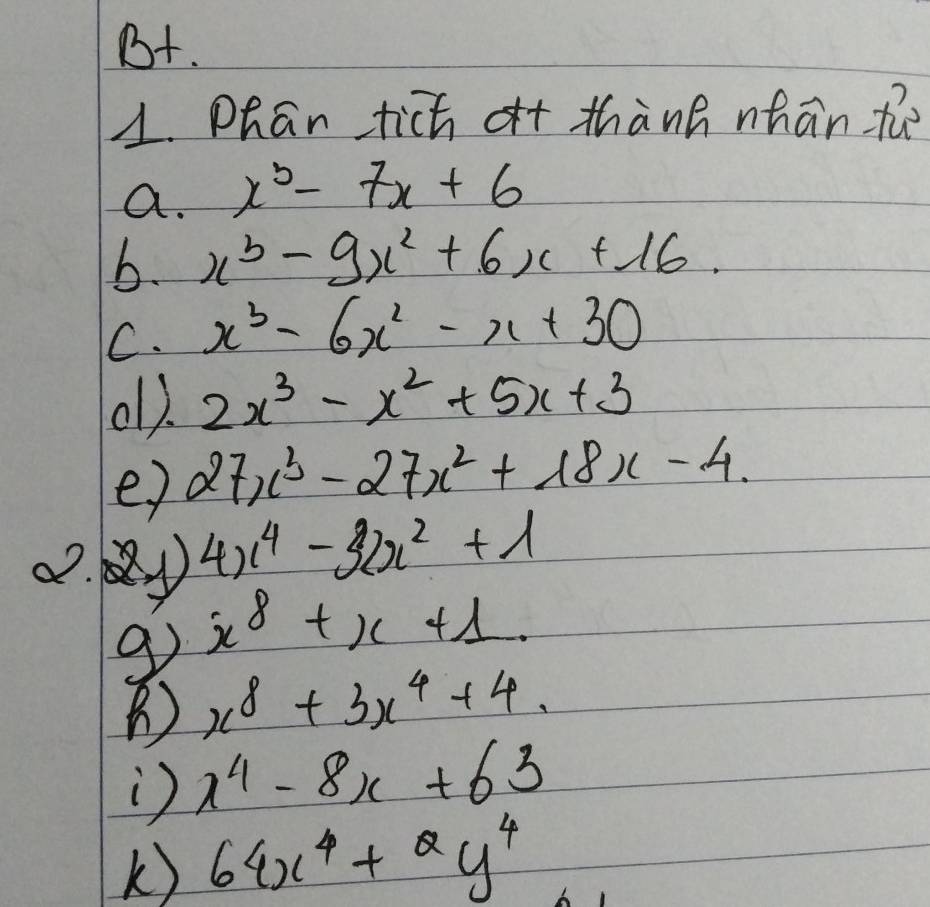 Bt.
1. Phân tích đtt thành nhân tử
a. x³ - 7x + 6
b. x³ - 9x² + 6x + 16.
c. x³ - 6x² - x + 30
d). 2x³ - x² + 5x + 3
e) 27x³ - 27x² + 18x - 4.
2. 4x⁴ - 32x² + 1
g) x⁸ + x + 1.
h) x⁸ + 3x⁴ + 4.
i) x⁴ - 8x + 63
k) 64x⁴ + y⁴